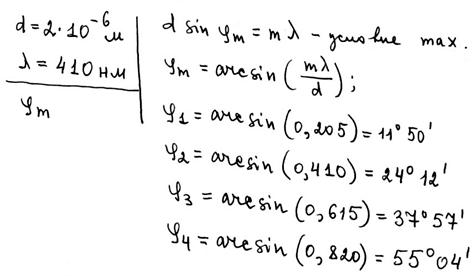 d = 2·10⁻⁶ м
λ = 410 нм
φm
d sin φm = m λ – условие max.
φm = arcsin (mλ/d);
φ1 = arcsin (0,205) = 11° 50'
φ2 = arcsin (0,410) = 24° 12'
φ3 = arcsin (0,615) = 37° 57'
φ4 = arcsin (0,820) = 55° 04'